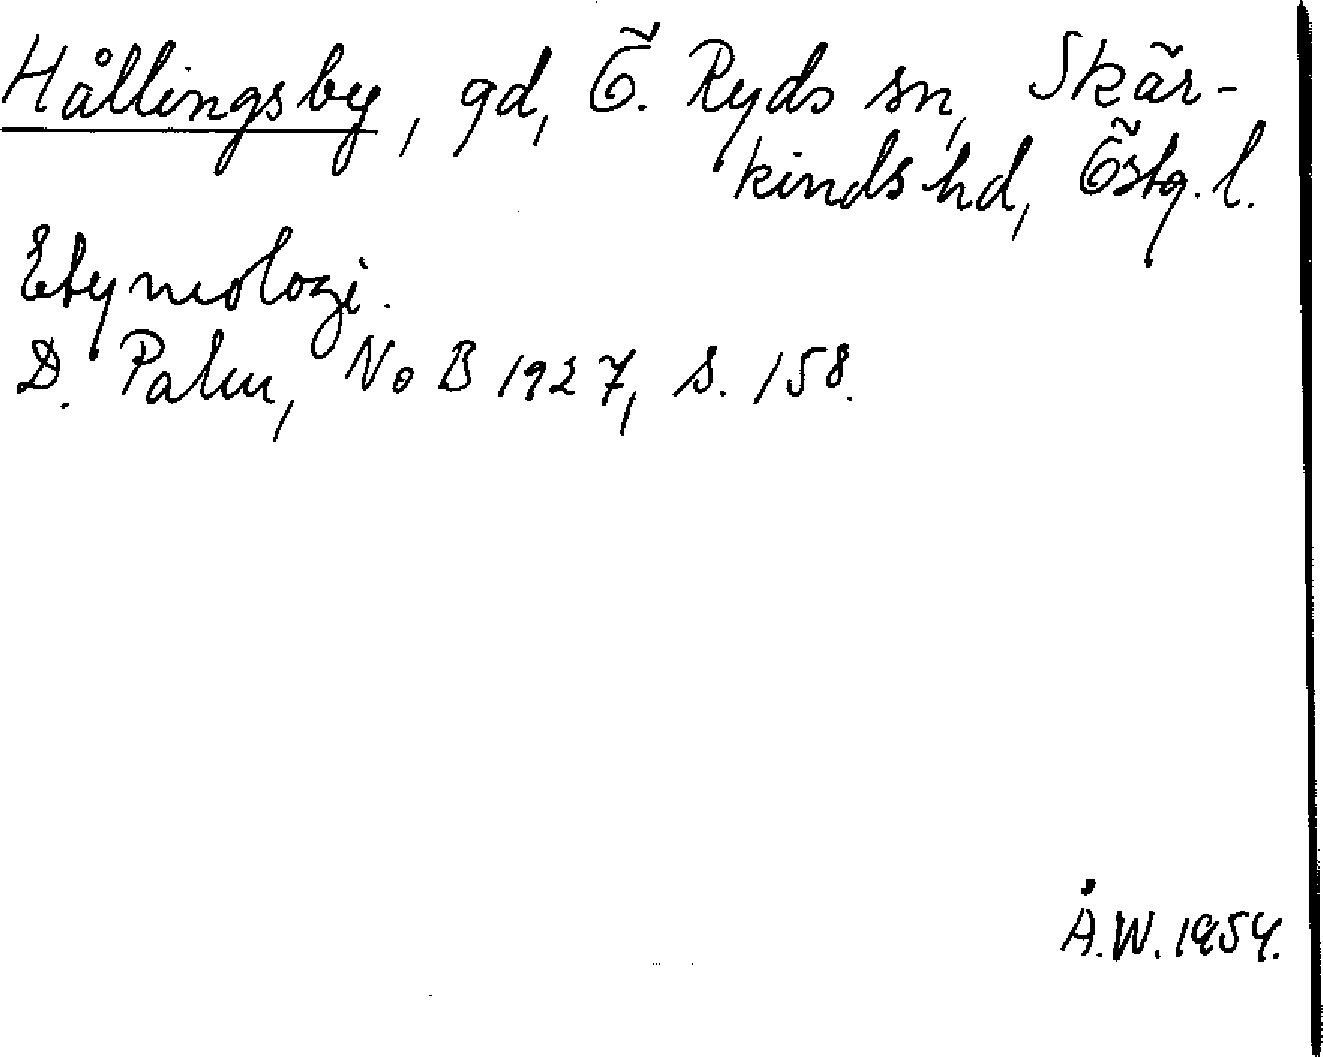 Hållingsby, gd, Ö. Ryds sn, Skär-
kinds hd, Östg. l.
Etymologi.
D. Palm, NoB 1927, s. 158.
Å.W. 1954.